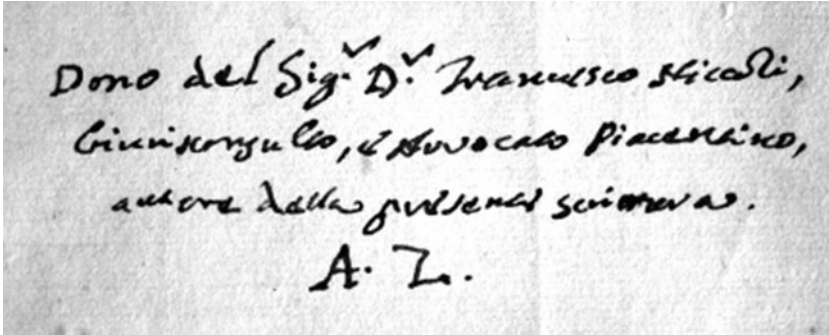 Dono del Sig.r D.r Francesco Niccoli,
Giurisconsulto, e Avvocato Piacentino,
autore della presente scrittura.
A. Z.